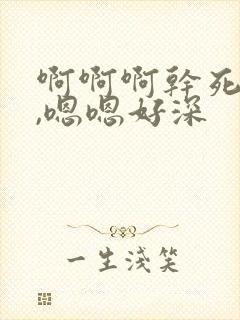 啊啊啊幹死
,嗯嗯好深
一生淺笑